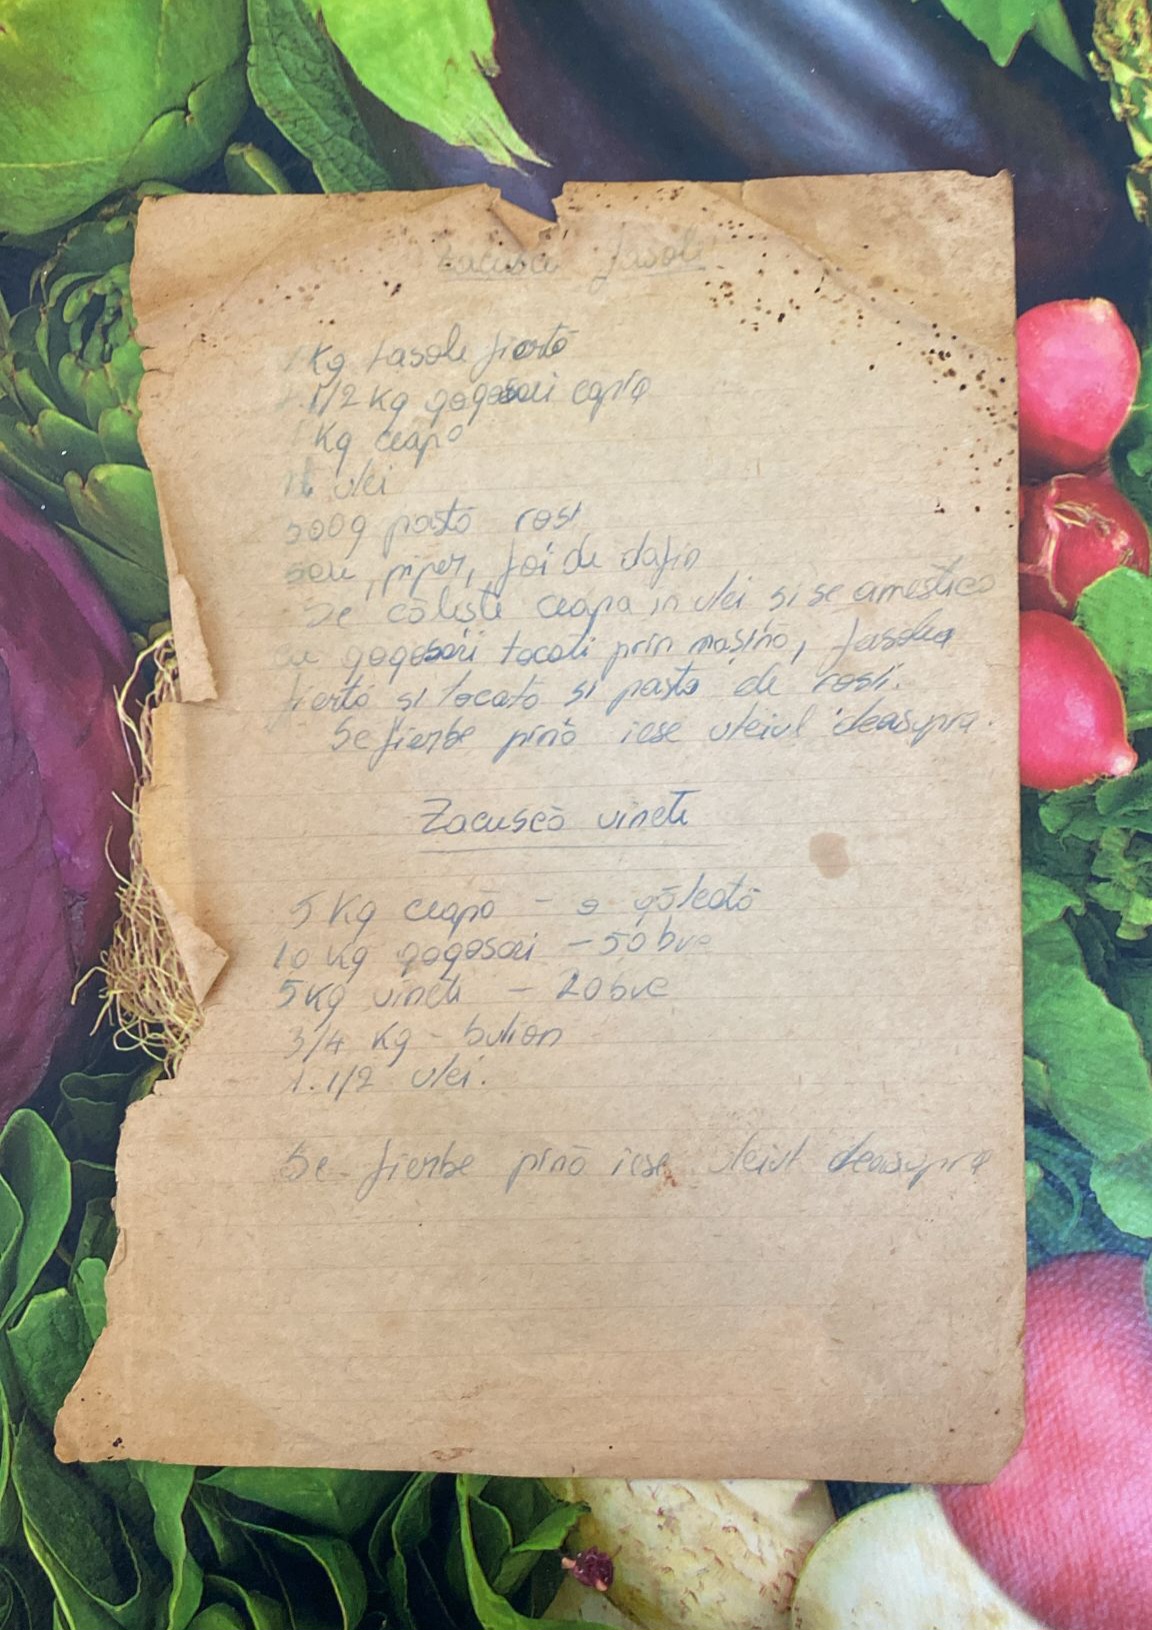 Zacuscă fasole
1 Kg fasole fiartă
1.1/2 Kg gogosari capia
1 Kg ceapă
1 l ulei
500g pastă rosi
sare, piper, foi de dafin
Se căleste ceapa in ulei si se amestică
cu gogosari tocati prin masină, fasolea
fiartă si tocată si pasta de rosii.
Se fierbe pînă iese uleiul deasupra.
Zacuscă vinete
5 Kg ceapă - o găleată
10 Kg gogosari - 50 buc
5 Kg vinete - 20 buc
3/4 Kg - bulion
1.1/2 ulei.
Se fierbe pînă iese uleiul deasupra